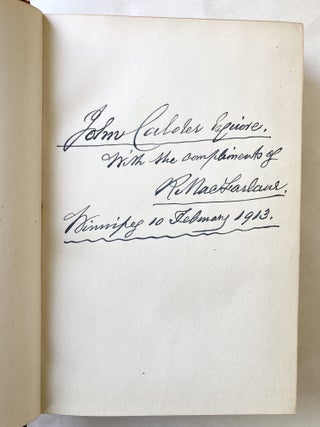 John Calder Esquire.
With the compliments of
R. MacFarlane.
Winnipeg 10 February 1913.